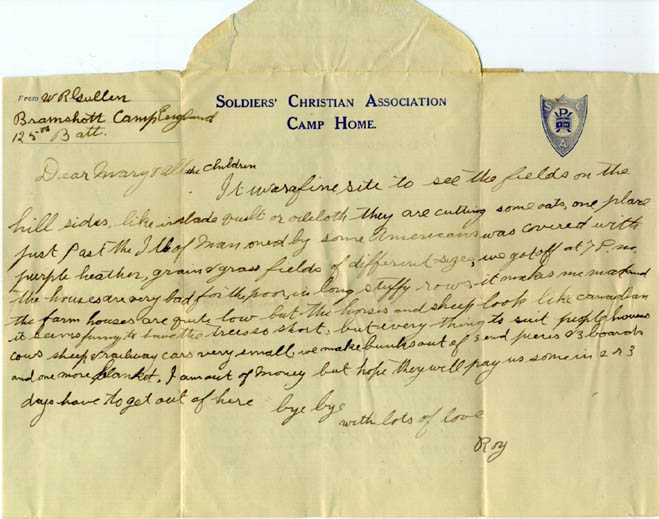 SOLDIERS' CHRISTIAN ASSOCIATION
CAMP HOME.
S C A
From W R Gullen
Bramshott Camp England
125th Batt.
Dear Mary & all the children
It was a fine site to see the fields on the
hill sides, like quilt or oilcloth they are cutting some oats, one place
just past the Isle of Man oned by some Americans was covered with
purple heather, grain & grass fields of different sizes, we got off at 7 P.m.
the houses are very bad for th poor, in long stuffy rows, it makes me mad and
the farm houses are quite low but the horses and sheep look like canadian
it seems funny to have the trees so short, but every thing to suit people houses
cows sheep & railway cars very small we make bunks out of 2 end pieces & 3 boards
and one more blanket, I am out of money but hope they will pay us some in 2 or 3
days have to get out of here bye bye
with lots of love
Roy